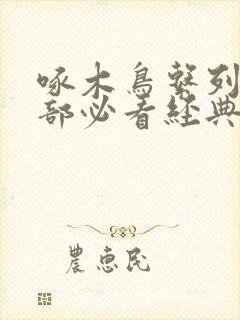 啄木鳥繫列
部必看經典
農惠民